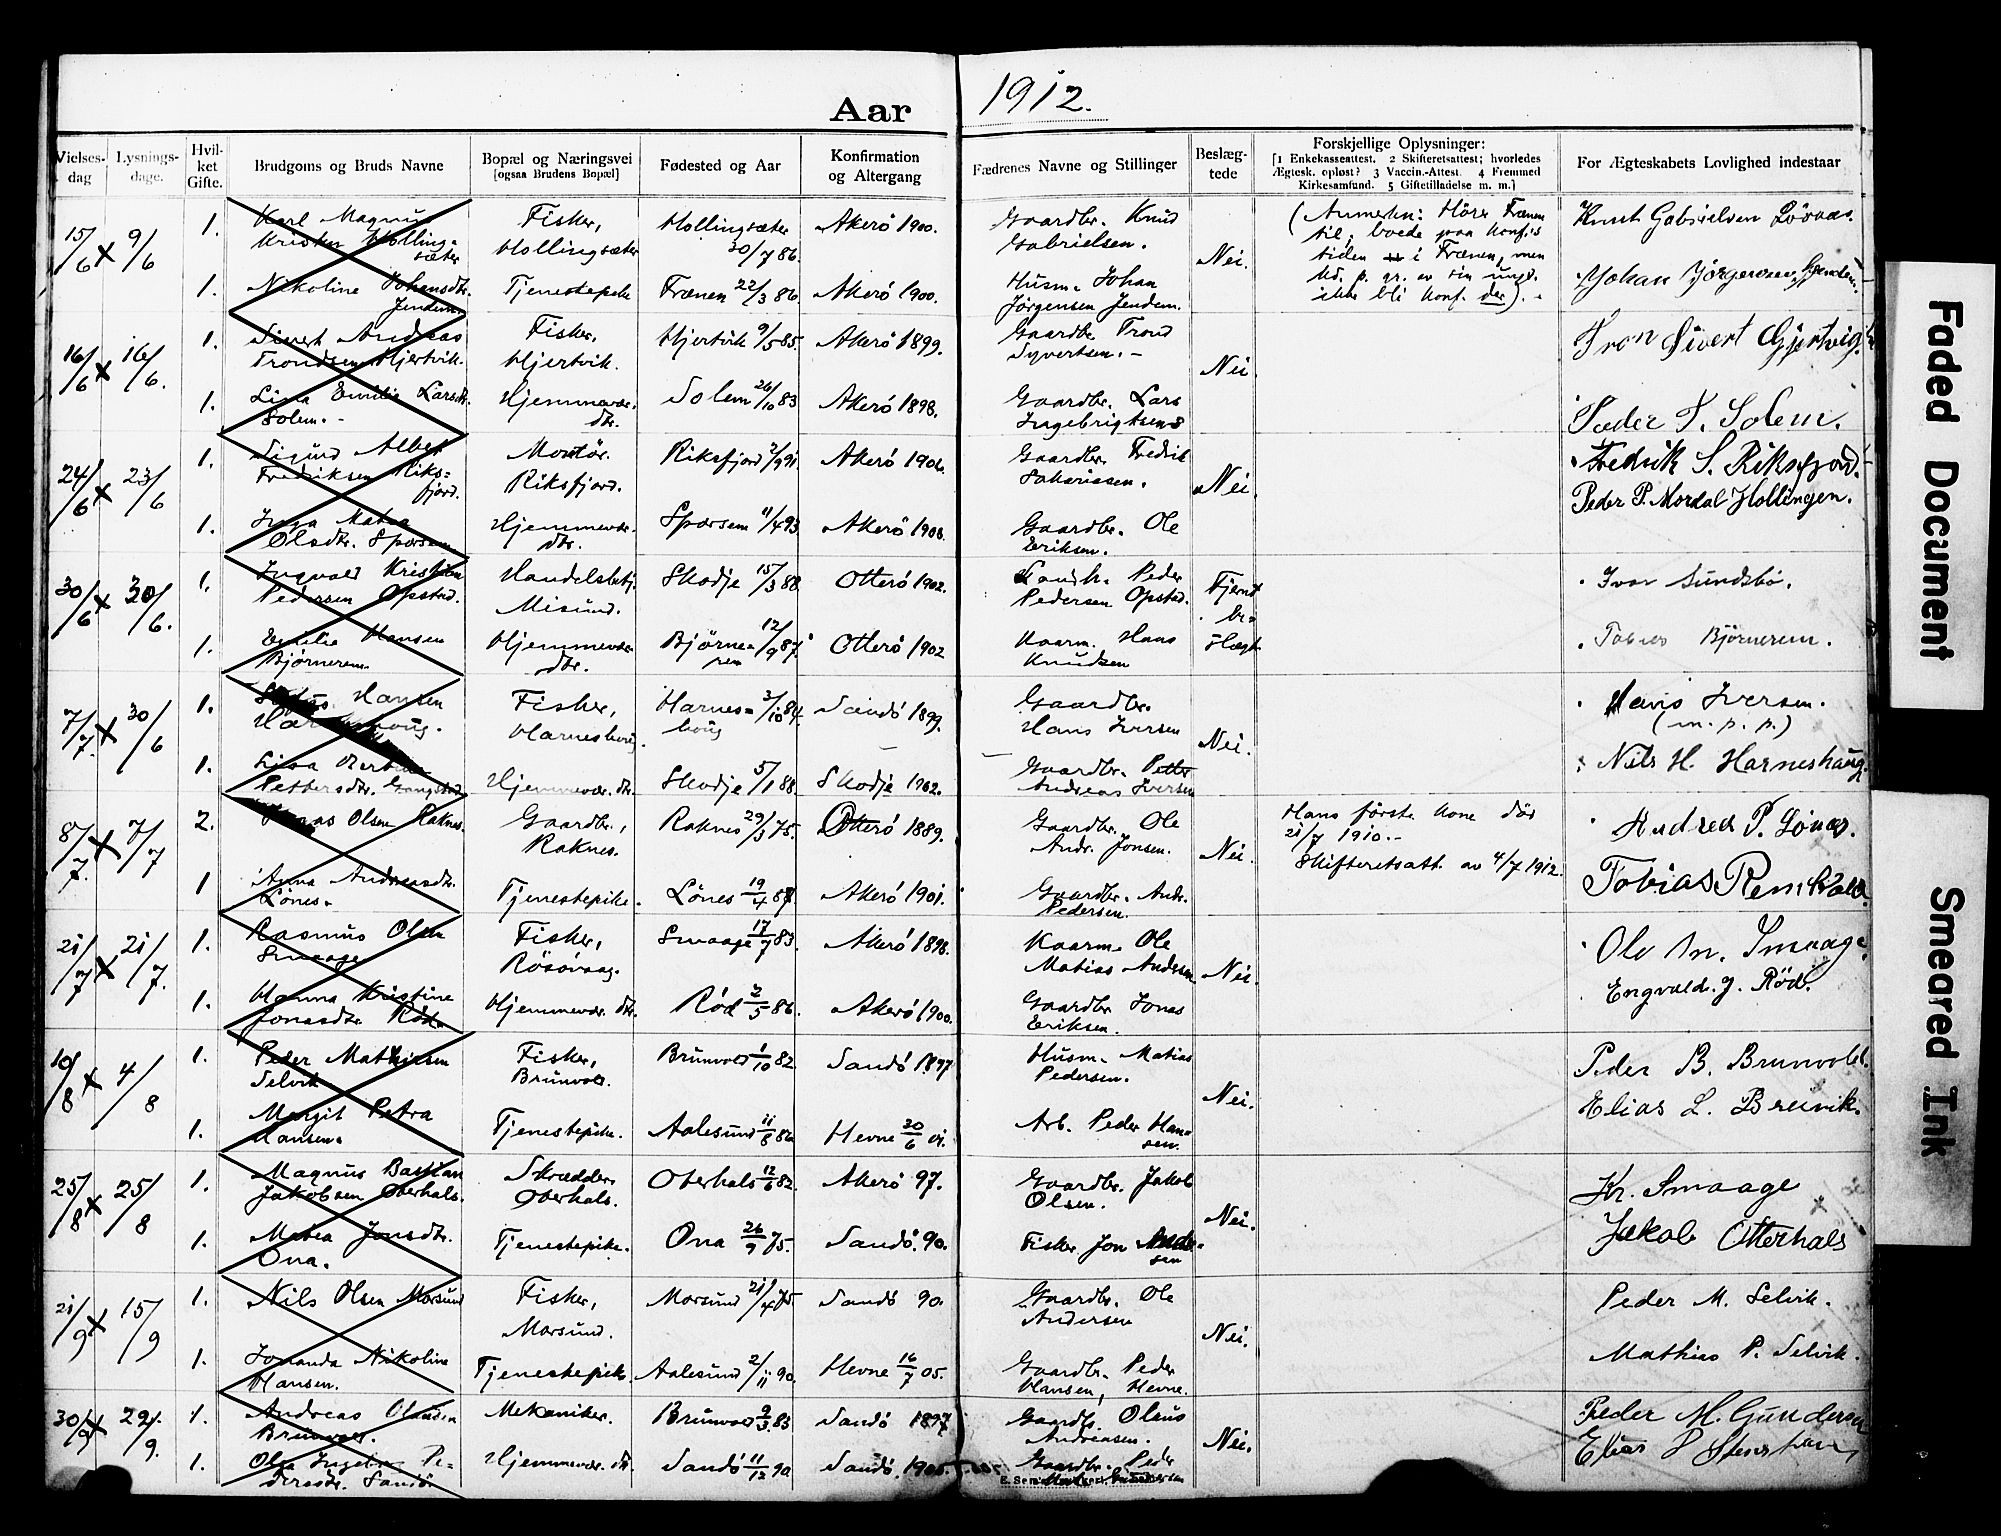 Aar 1912.
Vielses-dag
Lysnings-dage.
Hvil-ket Gifte.
Brudgoms og Bruds Navne
Bopæl og Næringsvei [ogsaa Brudens Bopæl]
Fødested og Aar
Konfirmation og Altergang
Fædrenes Navne og Stillinger
Beslæg-tede
Forskjellige Oplysninger: [1 Enkekasseattest. 2 Skifteretsattest; hvorledes Ægtesk. opløst? 3 Vaccin.-Attest. 4 Fremmed Kirkesamfund. 5 Giftetilladelse m. m.]
For Ægteskabets Lovlighed indestaar
15/6 x 9/6 1. Karl Magnus Kristen Hollingsæter Fisker, Hollingsæter Hollingsæter 30/7 86. Akerö 1900. Gaardbr. Knud Gabrielsen. Nei. (Anmerkn: Hörer Frænen til, boede paa konf.s tiden i Frænen, men ikke bli konf. der). Knut Gabrielsen
1. Nikoline Johansdtr. Jendem. Tjenestepike Frænen 22/3 86. Akerö 1900. Husm. Johan Jörgensen Jendem. Johan Jørgensen Jendem.
16/6 x 16/6. 1. Sivert Andreas Trondsen Hjertvik. Fisker, Hjertvik. Hjertvik 9/5 85. Akerö 1899. Gaardbr. Trond Syvertsen. Nei. Tron Sivert Gjertvig.
1. Lina Emilie Larsdtr. Solem. Hjemmevær. dtr. Solem 26/10 83 Akerö 1898. Gaardbr. Lars Ingebrigtsen Peder T. Solem.
24/6 x 23/6 1. Sigurd Albert Fredriksen Riksfjord. Montör. Riksfjord. Riksfjord 2/9 91. Akerö 1906. Gaardbr. Fredrik Sakariassen. Nei. Fredrik S. Riksfjord.
Peder P. Mordal Hollingen.
1. Inga Matea Olsdtr. Sporsem Hjemmevær. dtr. Sporsem 11/4 93. Akerö 1908. Gaardbr. Ole Eriksen.
30/6 x 30/6. 1. Ingvald Kristian Pedersen Opstad. Handelsbetj. Misund. Skodje 15/3 88 Otterö 1902. Landh. Peder Pedersen Opstad. Fjernt beslægt Ivar Sundsbö.
1. Emilie Hansen Björnerem. Hjemmevær. dtr. Björnerem 12/9 87. Otterö 1902 Kaarm. Hans Knudsen Tobias Björnerem.
7/7. x 30/6 1. Hansen Fisker, Harneshoug. Harneshoug 3/10 84. Sandö 1899. Gaardbr. Hans Iversen Nei. Hans Iversen. (m. p. p.)
1. Lina Pettersdtr. Hjemmevær. dtr. Skodje 5/1 88. Skodje 1902. Gaardbr. Petter Andreas Iversen Nils H. Harneshaug
8/7. x 7/7 2. Olsen Raknes. Gaardbr., Raknes. Raknes 29/3 75. Otterö 1889. Gaardbr. Ole Andr. Jonsen. Nei. Hans förste kone död 21/7 1910. Skifteretsatt. av 4/7 1912. Andreas P. Lönes.
1 Anna Andreasdtr. Lönes. Tjenestepike. Lönes 19/4 87 Akerö 1901. Gaardbr. Andr. Pedersen. Tobias
21/7 x 21/7. 1. Rasmus Olsen Smaage Fisker, Rösövaag. Smaage 17/7 83. Akerö 1898. Kaarm. Ole Matias Andersen Nei. Ole M. Smaage.
1. Hanna Kristine Jonasdtr. Röd. Hjemmevær. dtr. Röd 2/5 86. Akerö 1900. Gaardbr. Jonas Eriksen. Engvald. J. Röd.
10/8 x 4/8 1. Peder Mathiasen Selvik Fisker, Brunvold. Brunvold 1/10 82. Sandö 1897 Husm. Matias Pedersen. Nei. Peder B. Brunvold.
1. Margit Petra Hansen. Tjenestepike. Aalesund 11/8 86 Hevne 30/6 01. Arb. Peder Hansen. Elias L. Breivik.
25/8 x 25/8 1. Magnus Bastian Jakobsen Oterhals. Skrædder Oterhals. Oterhals 12/6 82. Akerö 97. Gaardbr. Jakob Olsen. Nei. Kr. Smaage
1. Matea Jonsdtr. Ona. Tjenestepike. Ona 26/9 75. Sandö 90. Fisker Jon Andersen Jakob Otterhals
21/9 x 15/9 1. Nils Olsen Morsund Fisker, Morsund. Morsund 21/4 75. Sandö 90. Gaardbr. Ole Andersen Nei. Peder M. Selvik.
1. Jonanda Nikoline Hansen. Tjenestepike Aalesund 2/11 90. Hevne 16/7 05. Gaardbr. Peder Hansen, Hevne. Mathias P. Selvik.
30/9 x 29/9. 1. Andreas Olausen Brunvold. Mekaniker. Brunvold 9/3 83 Sandö 1897 Gaardbr. Olaus Andreasen. Nei. Peder M. Gundersen
1. Olga Pedersdtr. Sandö. Hjemmevær. dtr. Sandö 11/12 90 Sandö. 1905 Gaardbr. Peder Elias
Faded Document
Smeared Ink